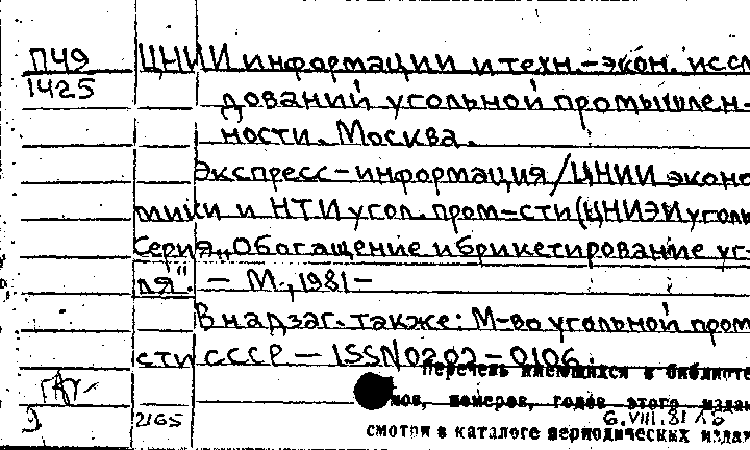 ПЧ9 ЦНИИ информации и техн.-экон. иссл
1425 дований угольной промышлен-
ности. Москва.
Экспресс-информация/ЦНИИ эконо
мики и НТИ угол. пром-сти (ЦНИЭИуголь
Серия „Обогащение и брикетирование уг-
ля". - М., 1981-
В надзаг. также: М-во угольной пром
сти СССР. - ISSN 0202-0106.
Перечень имеющихся в библиоте
мов, номеров, годов этого издан
2165 6.VIII.81
смотри в каталоге периодических издан